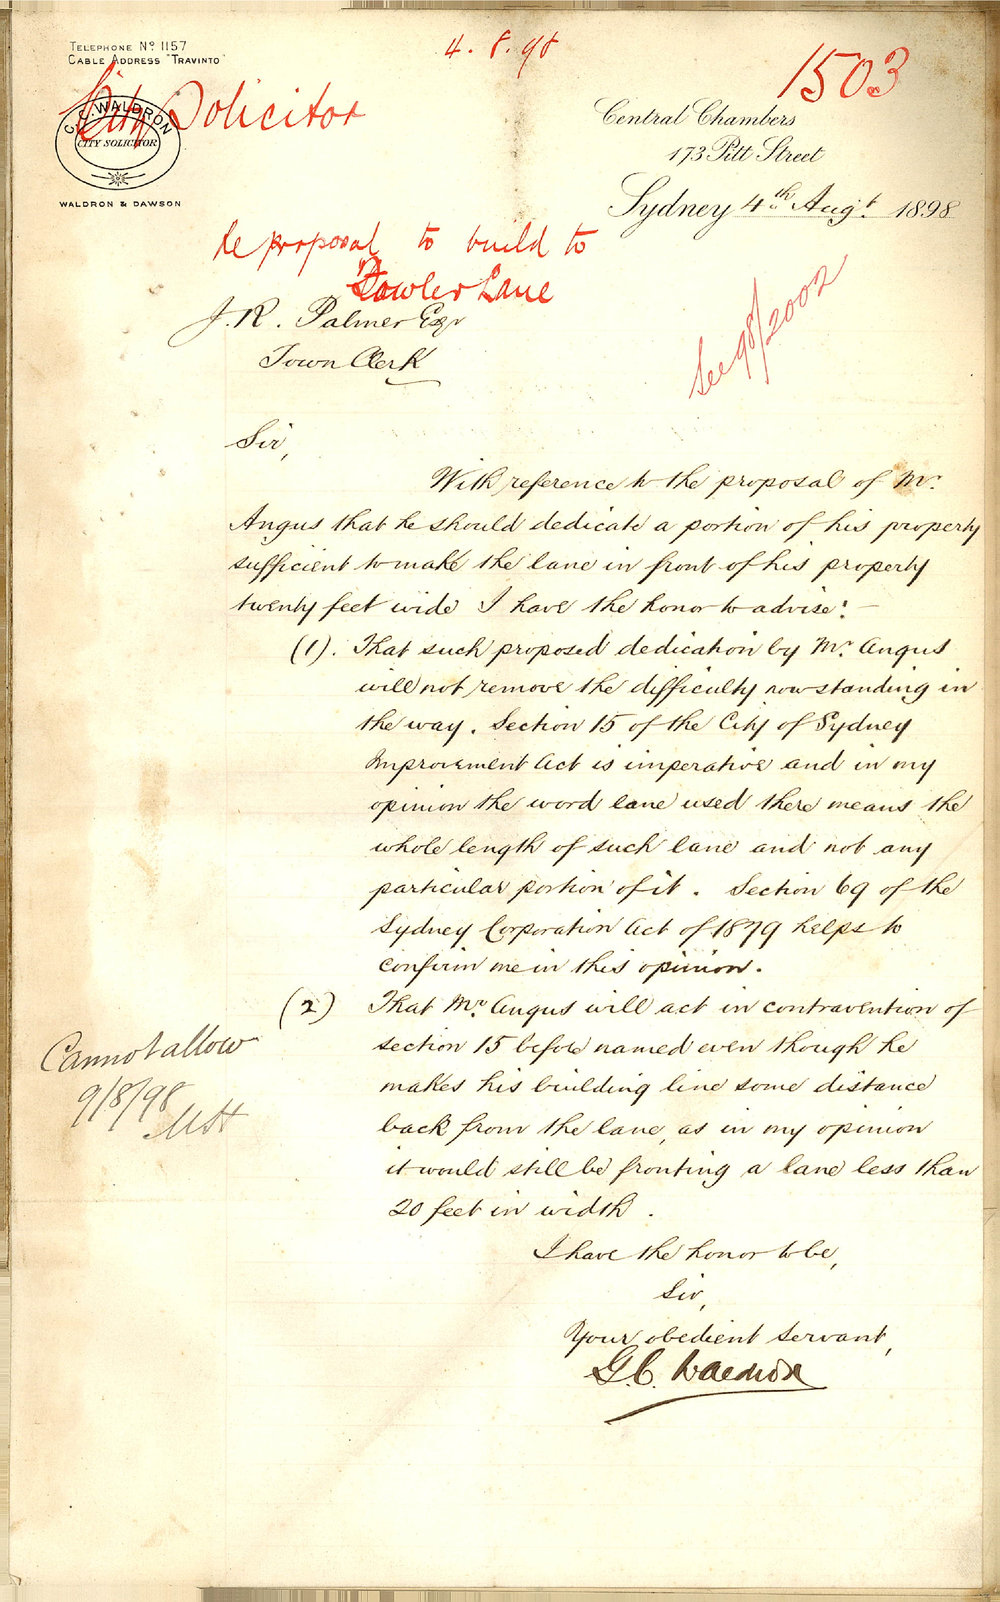 TELEPHONE Nº 1157
CABLE ADDRESS "TRAVINTO"
4. 8. 98
1503
City Solicitor
G. C. WALDRON
CITY SOLICITOR
WALDRON & DAWSON
Central Chambers
173 Pitt Street
Sydney 4th Augt. 1898
Re proposal to build to
Fowler Lane
See 98/2002
J. R. Palmer Esqr
Town Clerk
Sir,
With reference to the proposal of Mr.
Angus that he should dedicate a portion of his property
sufficient to make the lane in front of his property
twenty feet wide I have the honor to advise: —
(1). That such proposed dedication by Mr. Angus
will not remove the difficulty now standing in
the way. Section 15 of the City of Sydney
Improvement Act is imperative and in my
opinion the word lane used there means the
whole length of such lane and not any
particular portion of it. Section 69 of the
Sydney Corporation Act of 1879 helps to
confirm me in this opinion.
(2) That Mr. Angus will act in contravention of
section 15 before named even though he
makes his building line some distance
back from the lane, as in my opinion
it would still be fronting a lane less than
20 feet in width.
Cannot allow
9/8/98
I have the honor to be,
Sir,
Your obedient servant,
G. C. Waldron